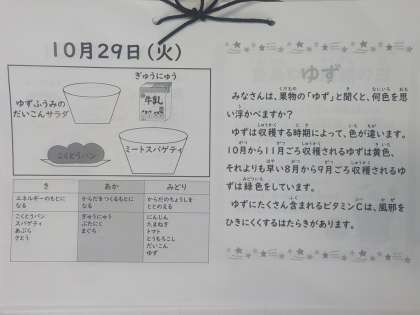 10月29日(火)
ぎゅうにゅう
牛乳
ゆずふうみの
だいこんサラダ
こくとうパン
ミートスパゲティ
き あか みどり
エネルギーのもとに
なる
からだをつくるもとに
なる
からだのちょうしを
ととのえる
こくとうパン
スパゲティ
あぶら
さとう
ぎゅうにゅう
ぶたにく
まぐろ
にんじん
たまねぎ
トマト
とうもろこし
だいこん
ゆず
ゆず
みなさんは、果物の「ゆず」と聞くと、何色を思
い浮かべますか?
ゆずは収穫する時期によって、色が違います。
10月から11月ごろ収穫されるゆずは黄色、
それよりも早い8月から9月ごろ収穫されるゆ
ずは緑色をしています。
ゆずにたくさん含まれるビタミンCは、風邪を
ひきにくくするはたらきがあります。